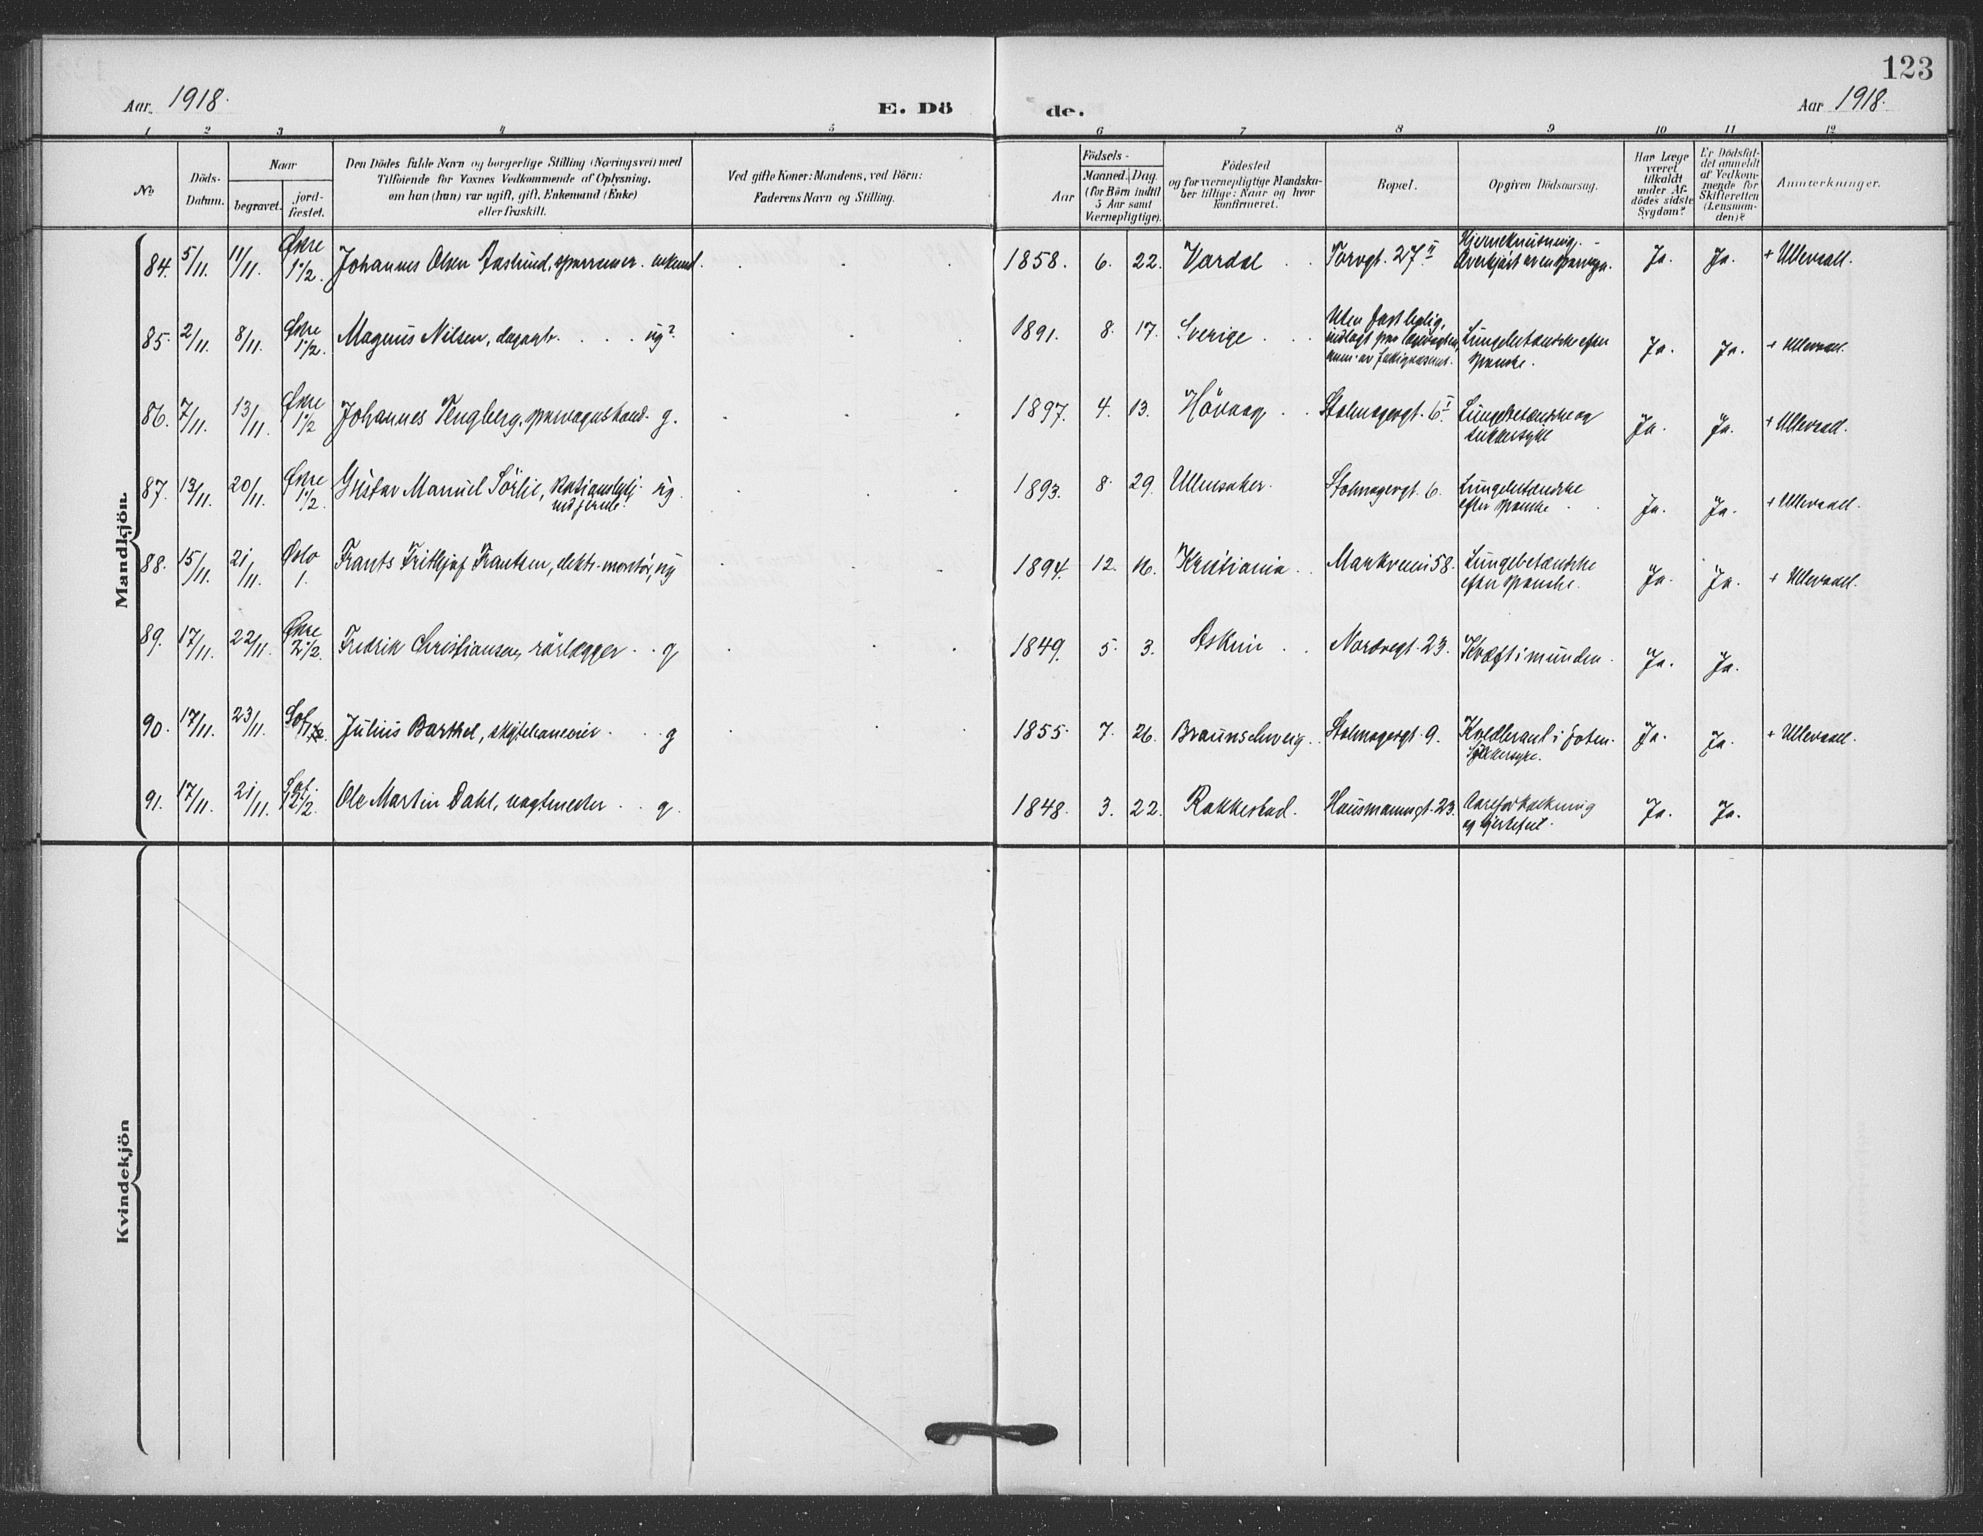 123
Aar 1918.
E. Dö
de.
Aar 1918.
1 2 3 4 5 6 7 8 9 10 11 12
No
Döds-
Datum.
Naar
begravet.
jord-
fæstet.
Den Dödes fulde Navn og borgerlige Stilling (Næringsvei) med
Tilföiende for Voxnes Vedkommende af Oplysning,
om han (hun) var ugift, gift, Enkemand (Enke)
eller fraskilt.
Ved gifte Koner: Mandens, ved Börn:
Faderens Navn og Stilling.
Födsels-
Aar
Maaned. Dag.
(for Börn indtil
5 Aar samt
Værnepligtige).
Födested
og for værnepligtige Mandska-
ber tillige: Naar og hvor
konfirmeret.
Bopæl.
Opgiven Dödsaarsag.
Har Læge
været
tilkaldt
under Af-
dödes sidste
Sygdom?
Er Dödsfal-
det anmeldt
af Vedkom-
mende for
Skifteretten
(Lensman-
den)?
Anmærkninger.
Mandkjön.
84. 5/11. 11/11. Østre 1 1/2. Johannes Olsen Aaslund, enkem. 1858. 6. 22. Vardal Torvgt. 27 II Ja. Ja. + Ullevaal.
85. 2/11. 8/11. Østre 1 1/2. Magnus Nilsen, ug? 1891. 8. 17. Sverige Uten fast bolig, Lungebetændelse efter
spanske. Ja. Ja. + Ullevaal.
86. 7/11. 13/11. Østre 1 1/2 Johannes Tengberg, g. 1897. 4. 13. Hövaag Stolmagergt. 6 I Lungebetændelse og
sukkersyke Ja. Ja. + Ullevaal.
87. 13/11. 20/11. Østre 1 1/2. Gustav Manuel Sörlie, ug. 1893. 8. 29. Ullensaker. Stolmagergt. 6. Lungebetændelse
efter spanske Ja. Ja. + Ullevaal.
88. 15/11. 21/11. Oslo 1. Frants Frithjof Frantsen, elektr. montör, ug 1894. 12. 16. Kristiania Markveien 58. Lungebetændelse
efter spanske. Ja. Ja. + Ullevaal.
89. 17/11. 22/11. Østre 2 1/2. Fredrik Christiansen, rörlægger g 1849. 5. 3. Askim Nordregt. 23. Kræft i munden. Ja. Ja.
90. 17/11. 23/11. Sof. Julius Barthel, g 1855. 7. 26. Braunschweig Stolmagergt. 9. Koldbrand i foten.
Sukkersyke. Ja. Ja. + Ullevaal.
91. 17/11. 21/11. Sof. 1 2/2. Ole Martin Dahl, vagtmester g. 1848. 3. 22. Rakkestad. Hausmannsgt. 23. Aareforkalkning
og hjertefeil. Ja. Ja.
Kvindekjön